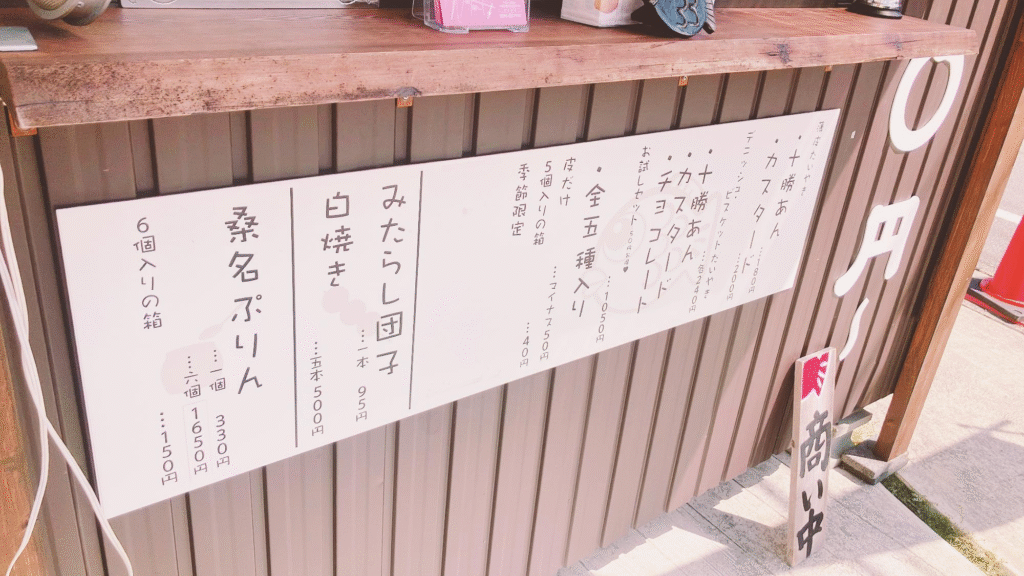 薄皮たいやき
・十勝あん
・カスタード
…180円
デニッシュ・ビスケットたいやき
…200円
・十勝あん
・カスタード
・チョコレート
…各240円
お試しセット
・全五種入り
…1050円
皮だけ
5個入りの箱
…マイナス50円
季節限定
…40円
みたらし団子
…一本 95円
白焼き
…五本 500円
桑名ぷりん
…一個 330円
…六個 1650円
6個入りの箱
…150円
0円〜
商い中